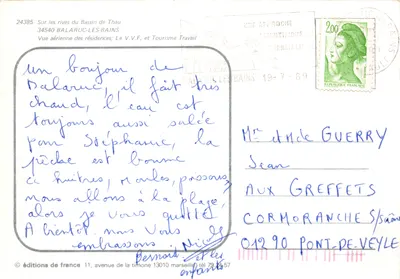 24385 Sur les rives du Bassin de Thau
34540 BALARUC-LES-BAINS
Vue aérienne des résidences; La V.V.F. et Tourisme Travail
un bonjour de
Balaruc, il fait très
chaud, l'eau est
toujours aussi salée
pour Stéphanie, la
pêche est bonne
ici huîtres, moules, poissons
nous allons à la plage,
alors je vous quitte
A bientôt nous Vous
embrassons
Bernard Nicole
et les
enfants
19-7-89
2,00
Mr et Mde GUERRY
Jean
AUX GREFFETS
CORMORANCHE S/Saône
01290 PONT-DE-VEYLE
© éditions de france 11, avenue de la timone 13010 marseille